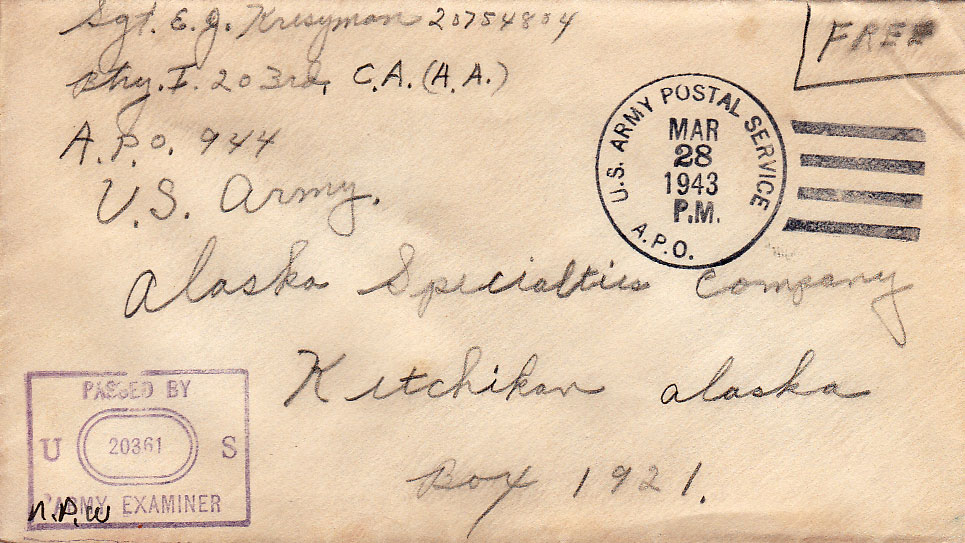 Sgt. E. J. Kresyman 20754804
Btry. I. 203rd, C.A. (A.A.)
A.P.O. 944
U.S. Army.
FREE
U.S. ARMY POSTAL SERVICE
MAR
28
1943
P.M.
A.P.O.
Alaska Specialties Company
Ketchikan Alaska
Box 1921.
PASSED BY
U 20361 S
ARMY EXAMINER
N.P.W